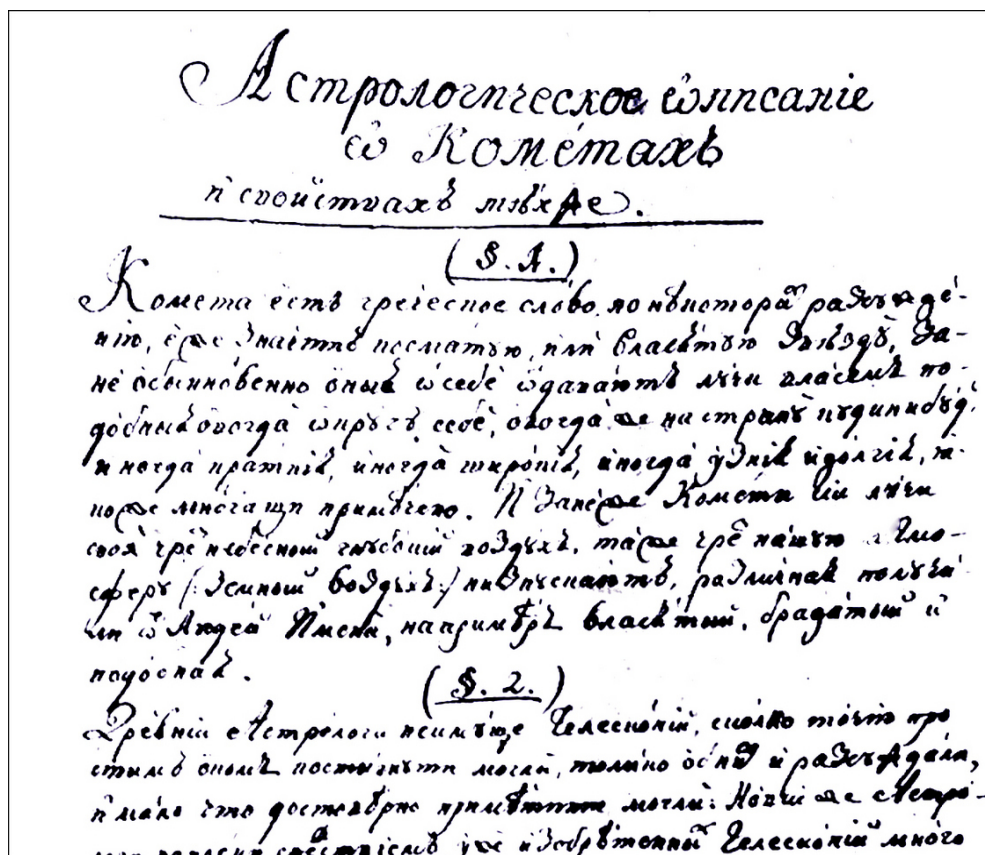 Астрологическое ѡписаніе
ѡ Кометахъ
и свойствахъ тѣхже.
(§. 1.)
Комета есть греческое слово, по нѣкотора разсужде-
нію, еже значитъ косматую, или власатую звѣзду, за-
не обыкновенно оныя ѿ себе ѿдаваютъ лучи власемъ по-
добныя овогда ѡкругъ себе, овогда же на страну
иногда краткія, иногда широкія, иногда узкія и долгія, я-
коже многащи примѣчено. И занеже Кометы сіи лучи
своя чре небесный воздухъ, также чре нашую Атмо-
сферу (: земный воздухъ :) испускаютъ, различная получи-
ли ѿ Людей Имена, напримѣръ власатый, брадатый и
подобная.
(§. 2.)
Древніи Астрологи неимуще Телескопій, сколко точію про
стымъ окомъ постигнути могли, толико обня и разсуждали,
и мало что достовѣрно примѣтити могли. Нынѣ же Астро-
изобрѣтенны Телескопій много